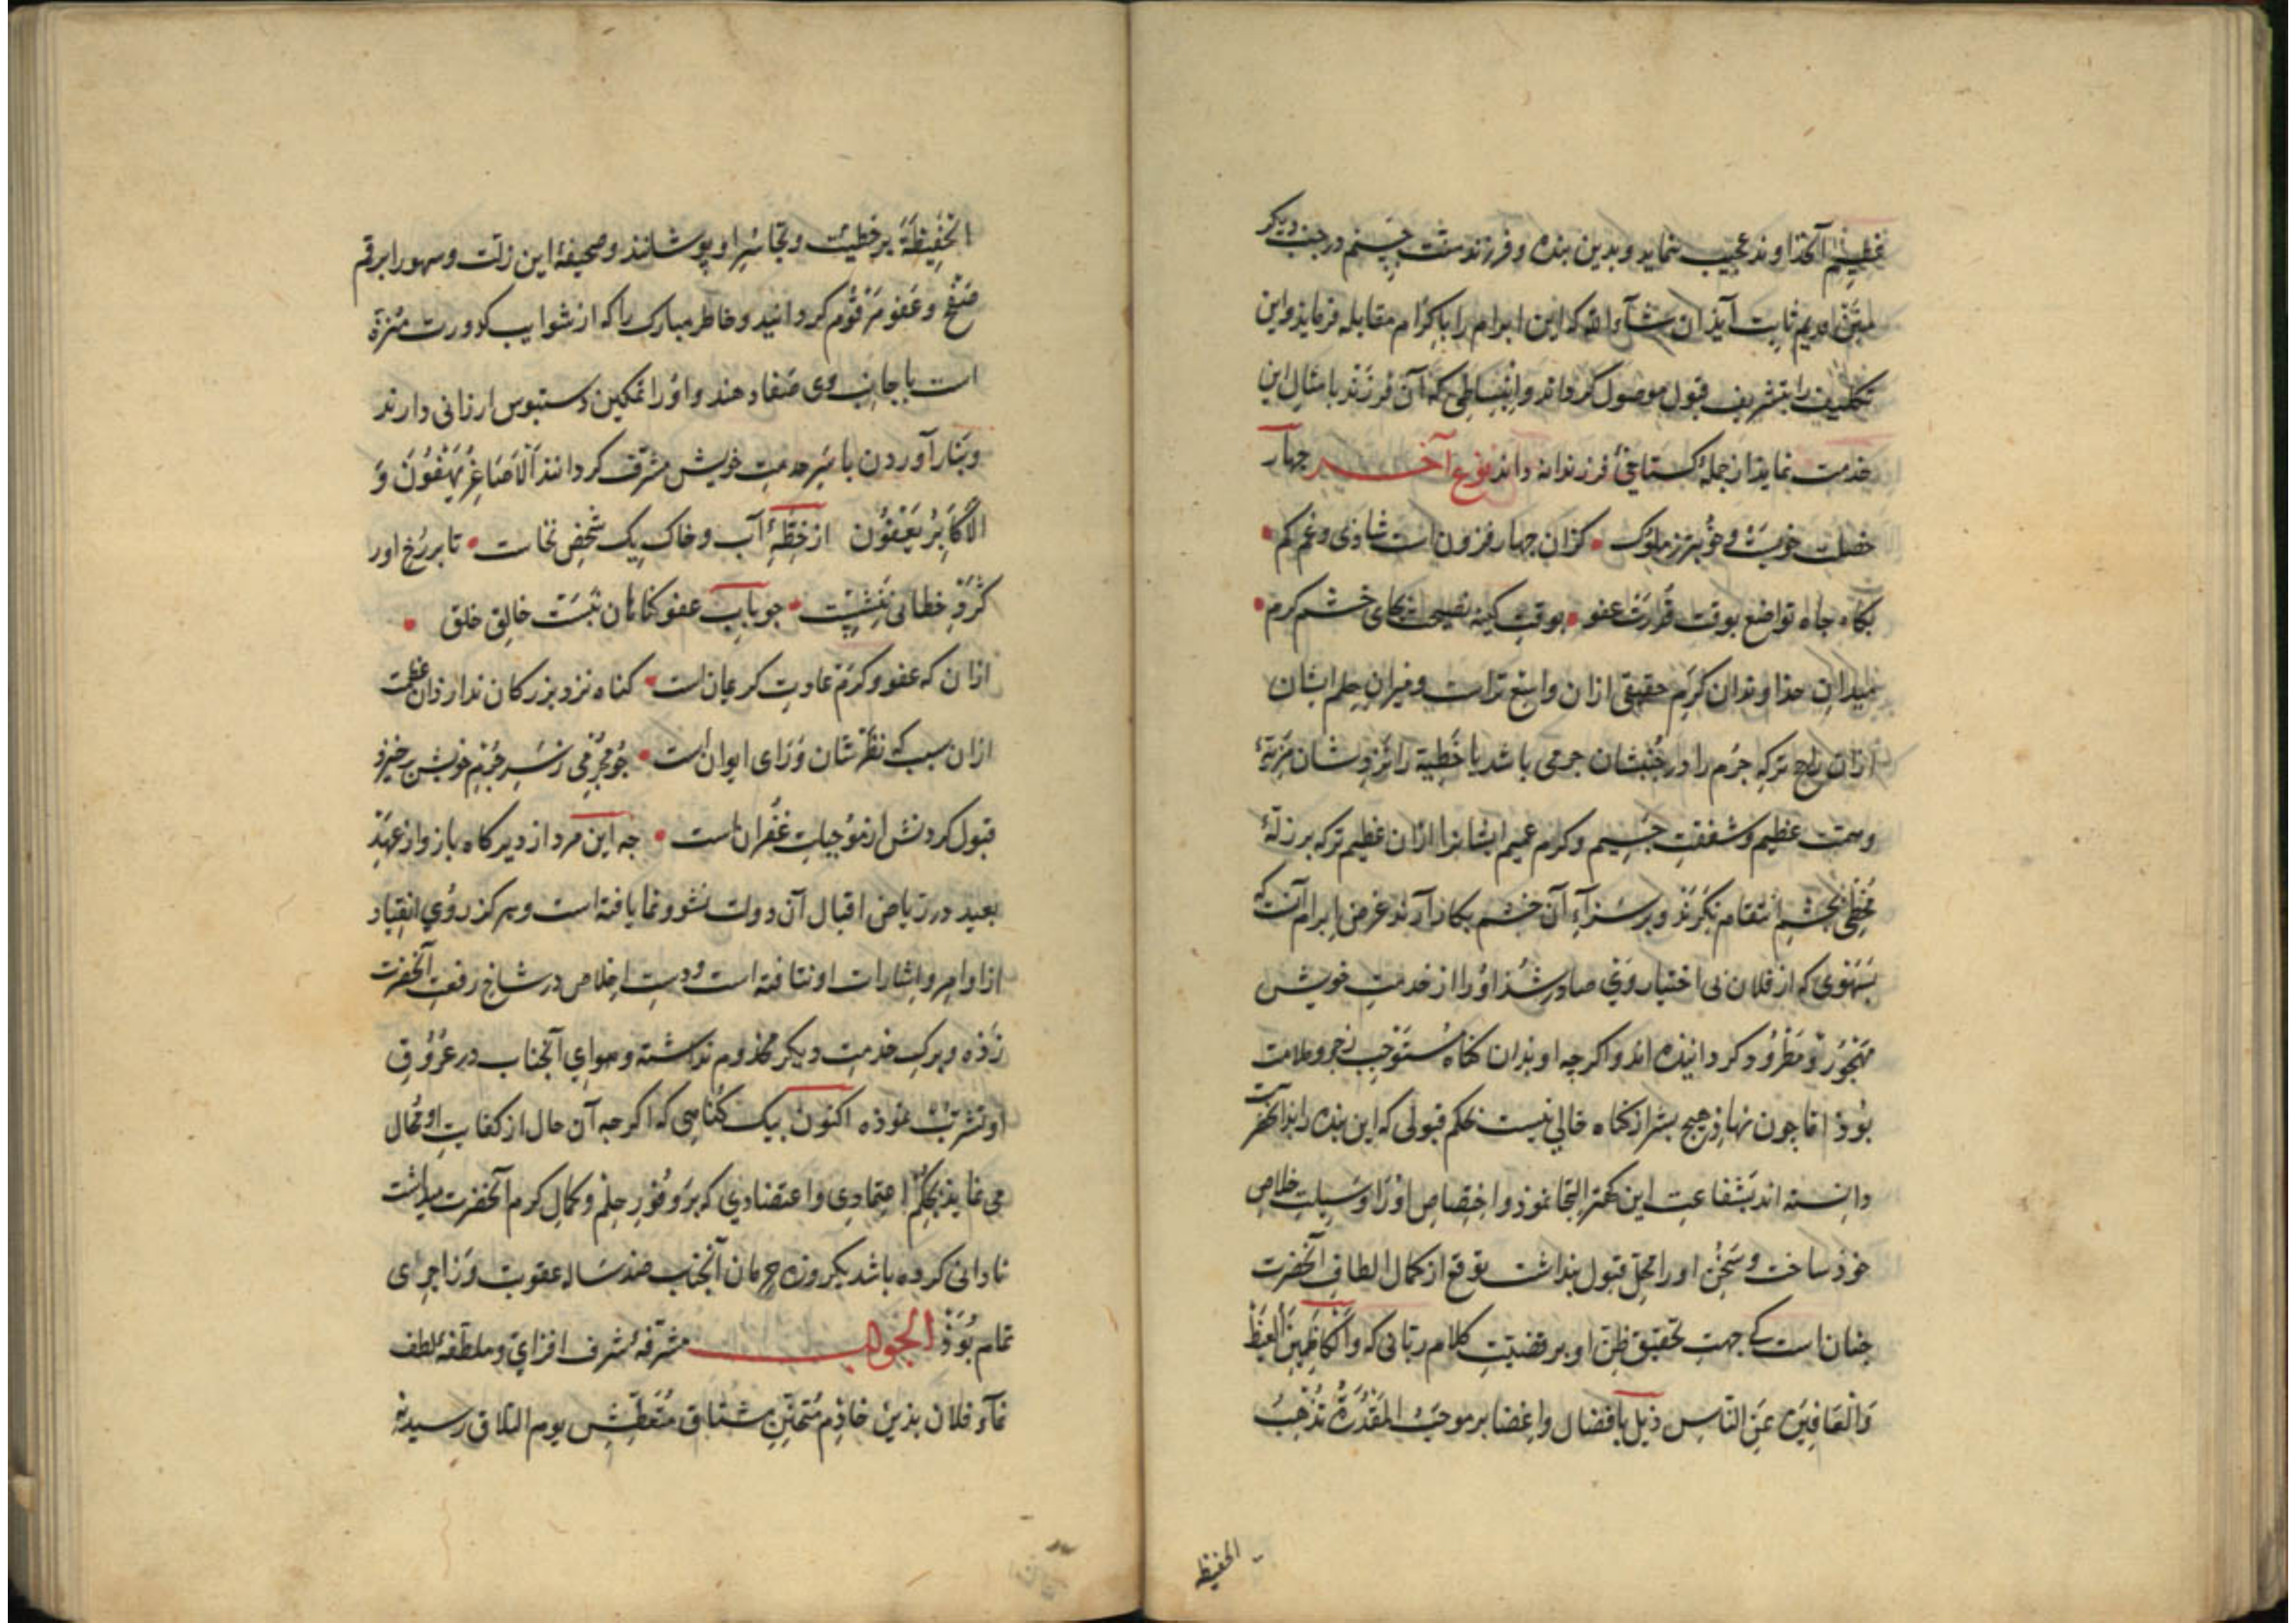 عظیم آنخداوند عجیب نماید و بدین بنده و فرزند منّت جسیم در جنب دیگر
منن او یم ثابت آید ان شآء الله که این ابرام را باکرام مقابله فرماید و این
تکلیف را بتشریف قبول موصول گرداند و انبساطی که آن فرزند بامثال این
خدمت نماید از جملهٔ گستاخیٔ فرزندانه داند نوع آخر چهار
خصلت خوبست و خوبتر ز ملوک • کزان چهار فزون است شادی و غم کم •
بکاه جاه تواضع بوقت قدرت عفو • بوقت کینه نصیحت بجای خشم کرم •
میدان خداوندان کرم حقیقی ازان واسع تراست و میزان حلم ایشان
ازان راجح ترکه جرم را در جنبشان جرمی باشد یا خطیة را نزدشان مزیّة
و همّت عظیم و شفقت جسیم و کرم عمیم ایشانرا ازان عظیم ترکه بر زلّهٔ
مخطی بچشم انتقام نگرند و بر سزآء آن خشم بکار آرند غرض ابرام آنست که
بسهوی که از فلان بی اختیار وی صادر شذ او را از خدمت خویش
مهجور و مطرود گردانیده اند و اگر چه او بذان گناه مستوجب زجر و ملامت
بوذ اما چون نهاذ هیچ بشر از گناه خالی نیست بحکم قبولی که این بنده را بذآنحضرت
دانسته اند بشفاعت این کمتر التجا نموذ و اختصاص او را وسیلت خلاص
خوذ ساخت و سخن او را محل قبول پنداشت توقع از کمال الطاف آنحضرت
چنان است که جهت تحقیق ظن او بر قضیّت کلام ربّانی که والکاظمین الغیظ
والعافین عن الناس ذیل بافضال و اغضا بر موجب المقدرة تذهب
الحفیظه
الحفیظة بر خطیئت و تجاسر او پوشانند و صحیفهٔ این زلّت و سهو را برقم
صفح و عفو مرقوم کردانید و خاطر مبارک را که از شوایب کدورت منزّه
است با جانب وی صفا دهند و او را تمکین دستبوس ارزانی دارند
و بتار آوردن با سر خدمت خویش مشرّف کردانند الاصاغر یهفون و
الاکابر یعفون از خطّهٔ آب و خاک یک شخص نخاست • تا بر رخ اور
کژد خطائی ننشست • جو باب عفو کناهان نبست خالق خلق •
ازان که عفو و کرم عادت کریمان است • کناه نزد بزرکان ندارد آن عظمت
ازان سبب که نظرشان ورای ایوان است • جو مجرمی ز سر جرم خویش برخیزد
قبول کردنش از موجبات غفران است • جه این مرد از دیرکاه باز و از عهد
بعید در ریاض اقبال آن دولت نشو و نما یافته است و هرکز روی انقیاد
از اوامر و اشارات او نتافته است و دست اخلاص در شاخ رفعت آنحضرت
زذه و برک خدمت دیکر مخدوم نداشته و هوای آنجناب در عروق
او تشرّب نموذه اکنون بیک کناهی که اکر جه آن حال از کفایت او محال
می نمایذ بحکم اعتمادی و اعتضادی که بر وفور حلم و کمال کرم آنحضرت میداشت
نادانی کرده باشد یکروزه حرمان آنجناب صد ساله عقوبت و زاجرای
تمام بوذ الجواب مشرّفهٔ شرف افزای و ملطّفهٔ لطف
نمآء فلان بذین خاذم متحنّن مشتاق متعطّش یوم التلاق رسیده